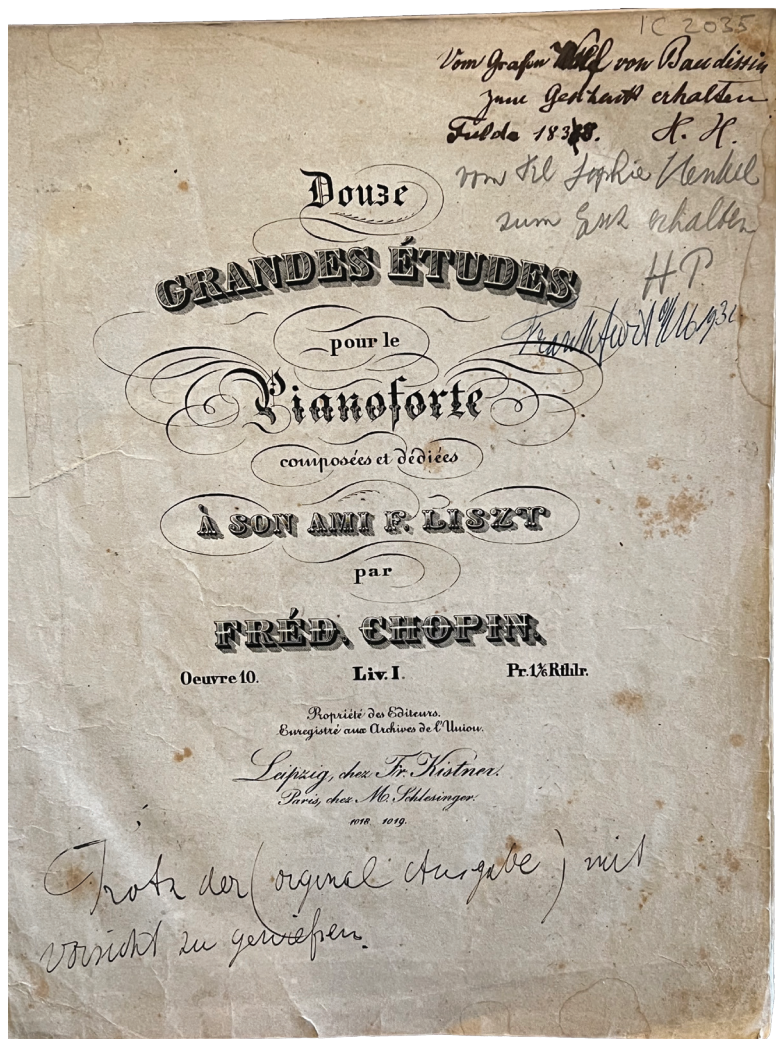 IC 2035
Vom Grafen Wolf von Baudissin
zum Geschenk erhalten
Fulda 1838. H. H.
vom Frl Sophie Henkel
zum Gesch erhalten
H P.
Frankfurt a/M 1931
Douze
GRANDES ÉTUDES
pour le
Pianoforte
composées et dédiées
À SON AMI F. LISZT
par
FRÉD. CHOPIN.
Oeuvre 10. Liv. I. Pr. 1⅙ Rthlr.
Propriété des Editeurs.
Enregistré aux Archives de l'Union.
Leipzig, chez Fr. Kistner.
Paris, chez M. Schlesinger.
1018. 1019.
Trotz der (orginal Ausgabe) mit
vorsicht zu genießen.